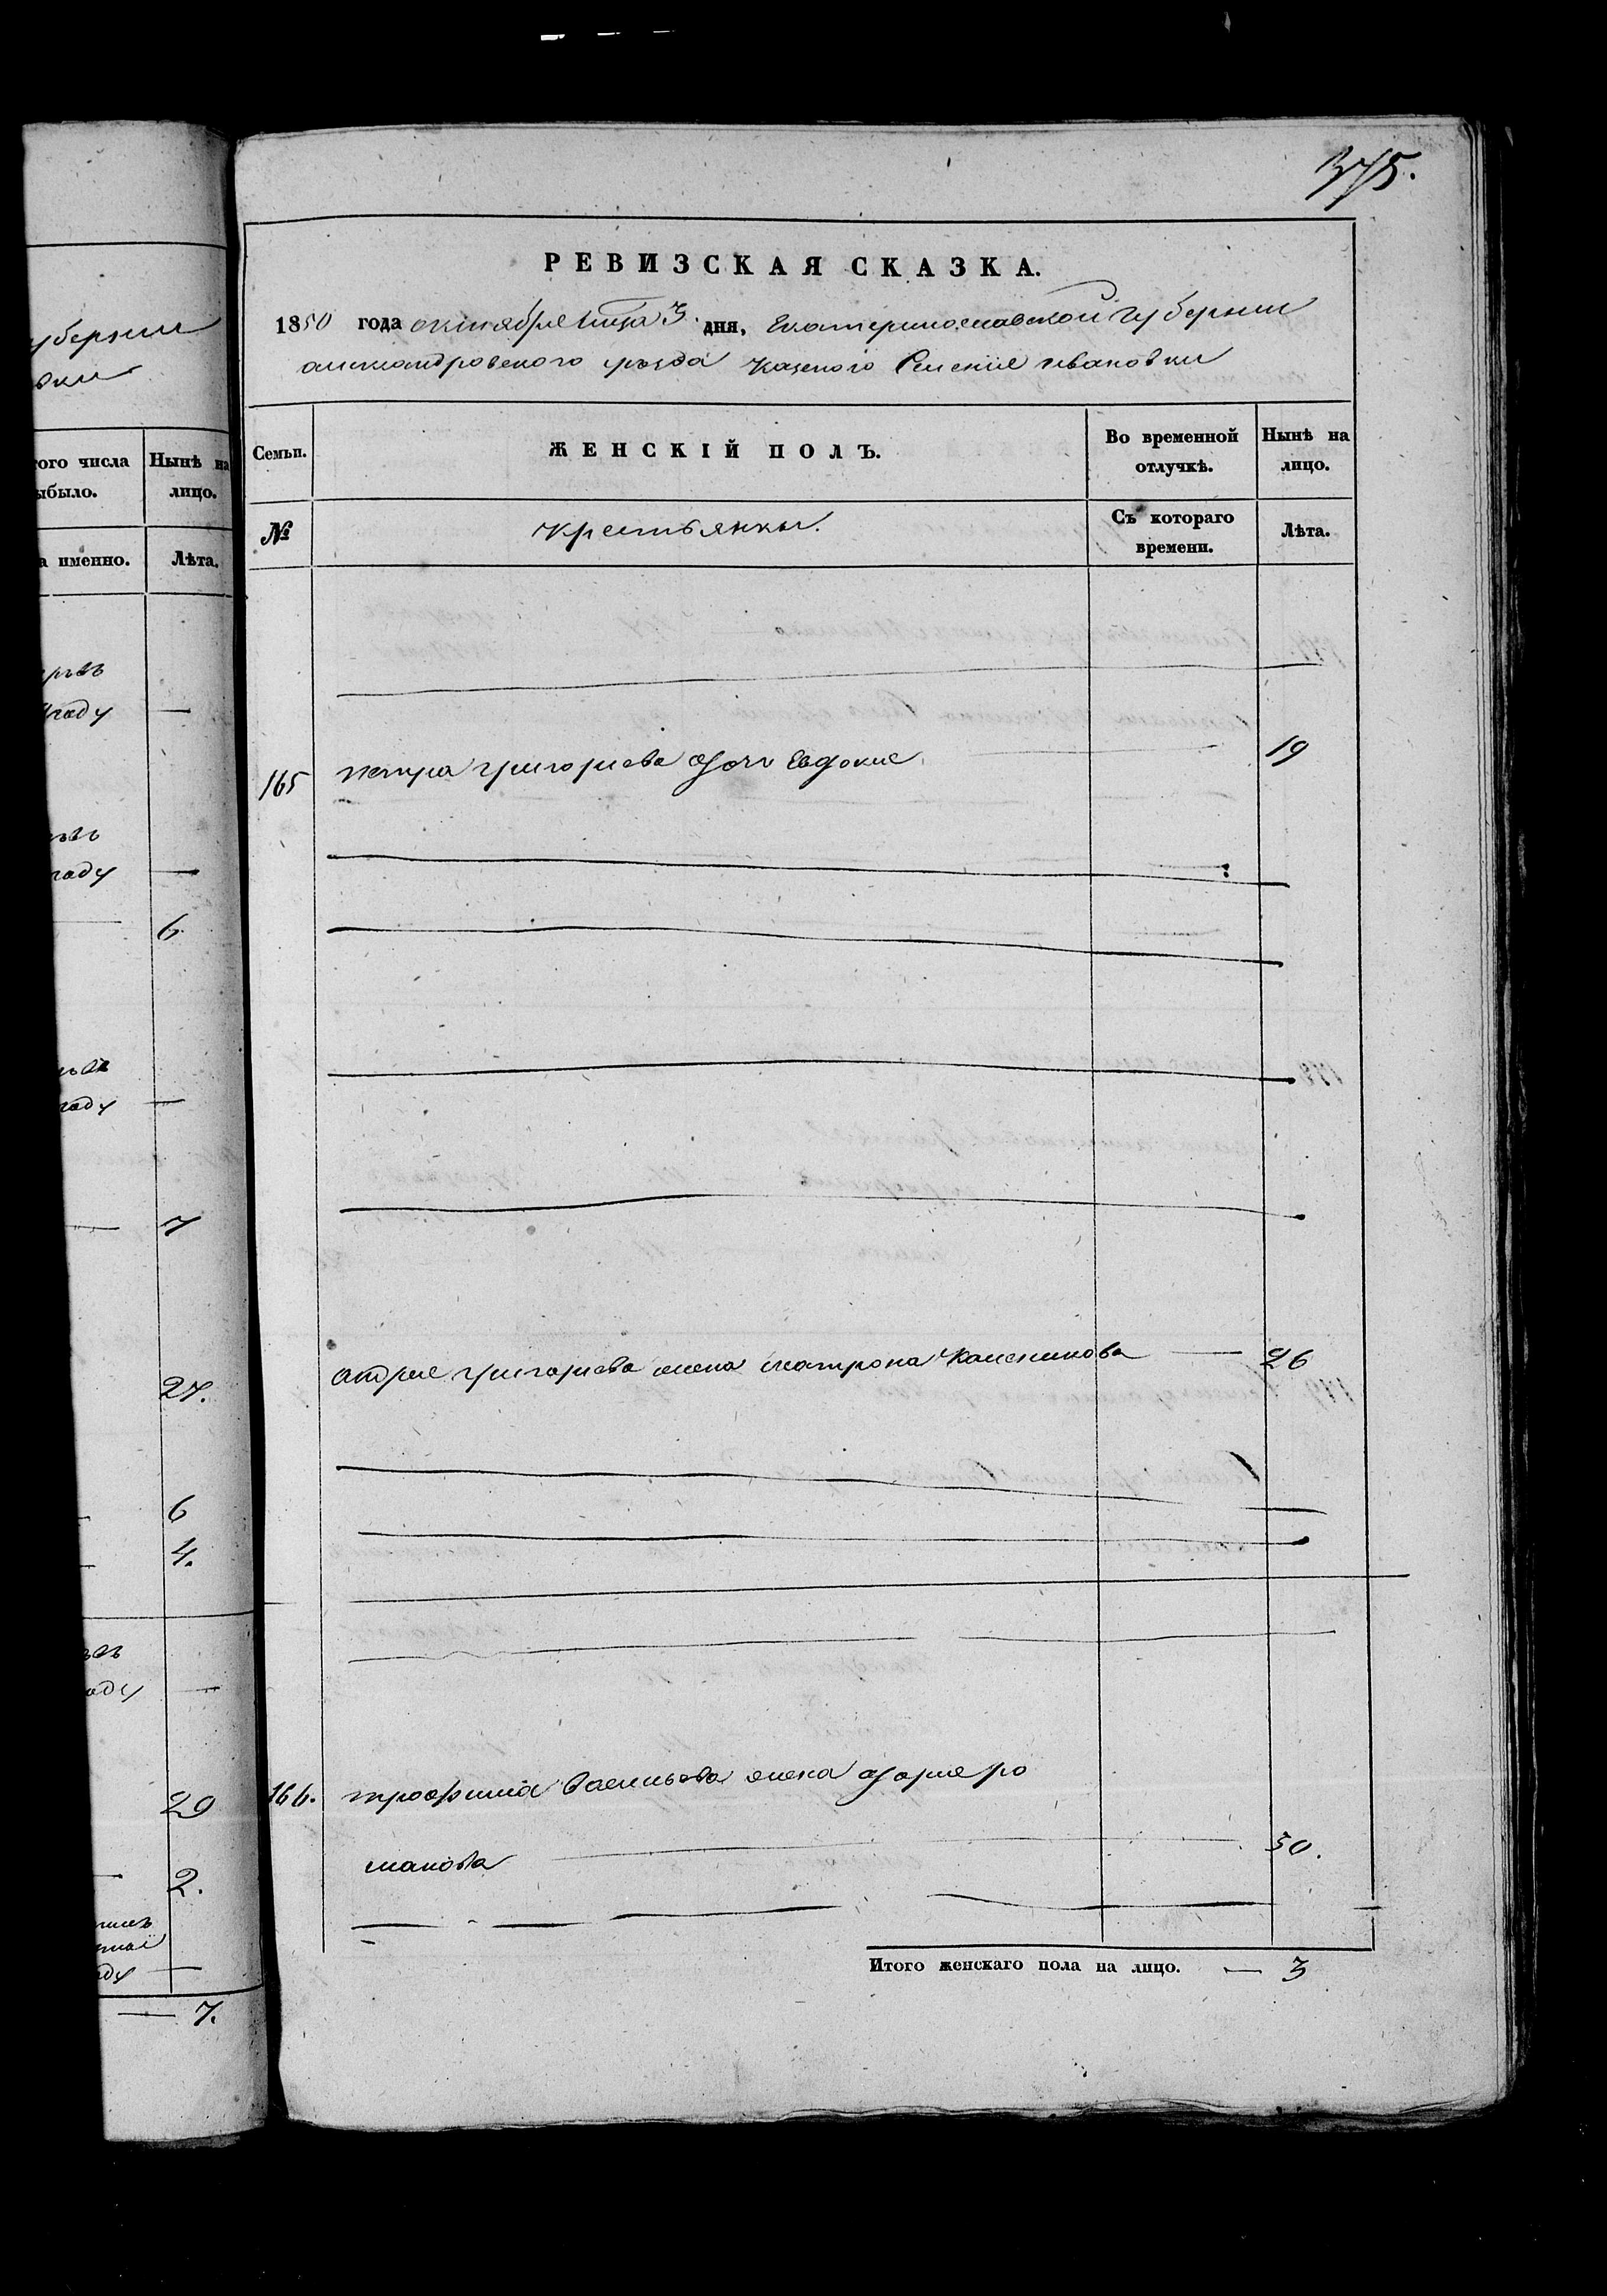 375.
РЕВИЗСКАЯ СКАЗКА.
1850 года октября месяца 3. дня, Екатеринославской Губернии
александровского уезда казеного Селения ивановки
Семьи.
ЖЕНСКІЙ ПОЛЪ.
Во временной отлучкѣ.
Нынѣ на лицо.
№
крестьянки.
Съ котораго времени.
Лѣта.
165 петра григориева дочь Евдокия 19
андрея григориева жена матрона Калсникова 26
166. трофима Васильева жена дария ро
манова 30.
Итого женскаго пола на лицо. — 3
уберния
вки
того числа
ыбыло.
Нынѣ на
лицо.
а именно.
Лѣта.
году —
году —
6
году —
7
27.
6
4.
оду —
29
2.
ду —
— 7.